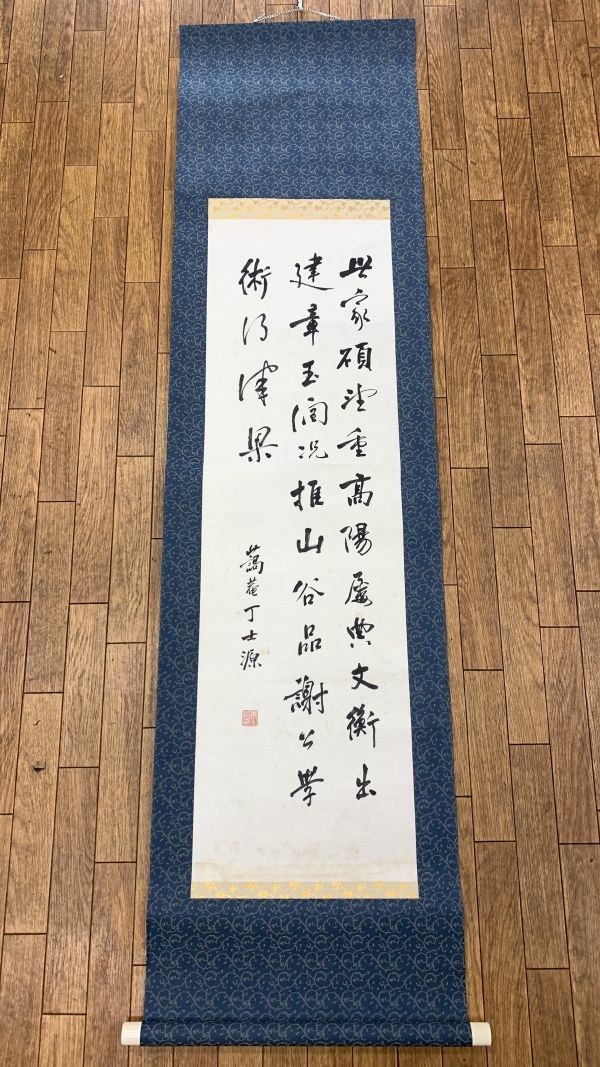 世家碩望重高陽屡典文衡出
建章玉潤況推山谷品謝公學
術行津梁
蒿菴丁士源